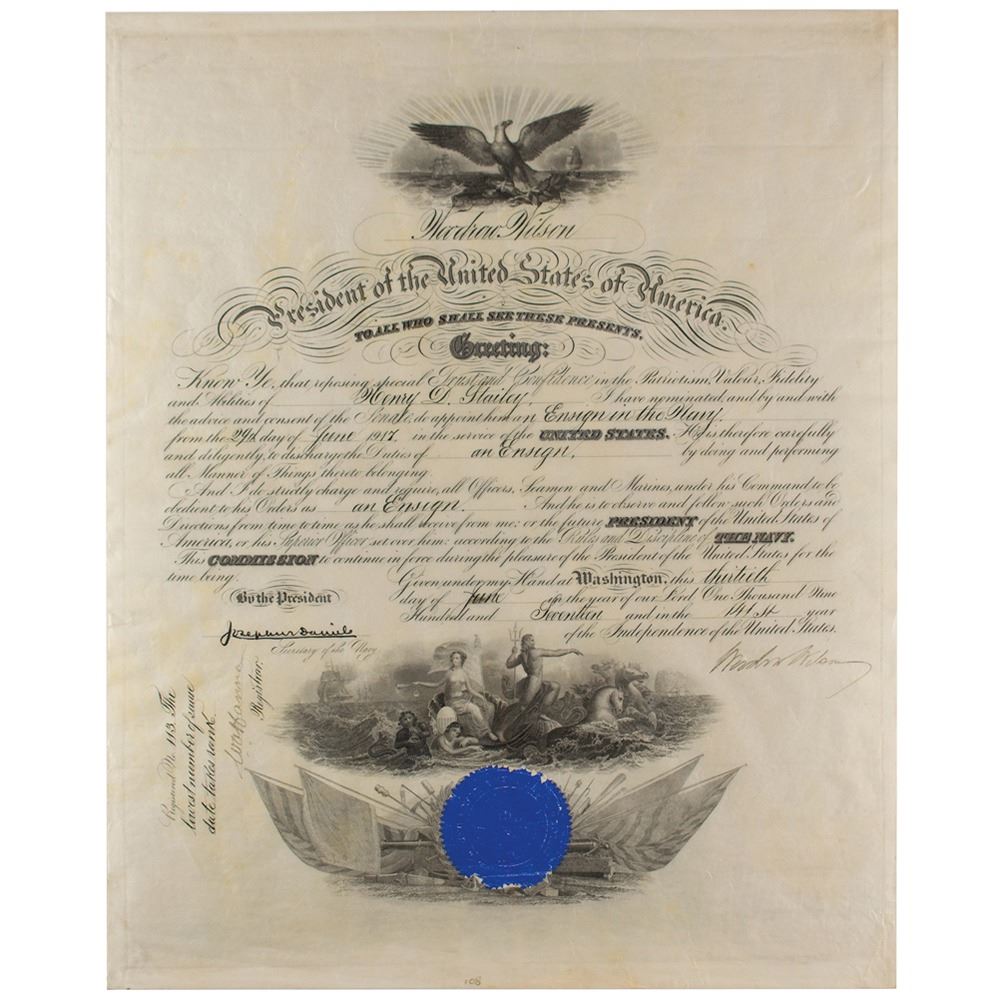 Woodrow Wilson
President of the United States of America.
TO ALL WHO SHALL SEE THESE PRESENTS,
Greeting:
Know Ye, that reposing special Trust and Confidence in the Patriotism, Valour, Fidelity
and Abilities of Henry D. I have nominated, and by and with
the advice and consent of the Senate, do appoint him an Ensign in the Navy
from the 29th day of June 1917 in the service of the UNITED STATES. He is therefore carefully
and diligently to discharge the Duties of an Ensign, by doing and performing
all Manner of Things thereto belonging.
And I do strictly charge and require, all Officers, Seamen and Marines, under his Command to be
obedient to his Orders as an Ensign. And he is to observe and follow such Orders and
Directions from time to time as he shall receive from me: or the future PRESIDENT of the United States of
America, or his Superior Officer set over him: according to the Rules and Discipline of THE NAVY.
This COMMISSION to continue in force during the pleasure of the President of the United States for the
time being.
Given under my Hand at Washington, this thirtieth
By the President
day of June in the year of our Lord One Thousand Nine
Hundred and Seventeen and in the 141st year
of the Independence of the United States.
Josephus Daniels
Secretary of the Navy
Woodrow Wilson
Registrar.
No. 113. The
lowest number of same
date takes rank.
108